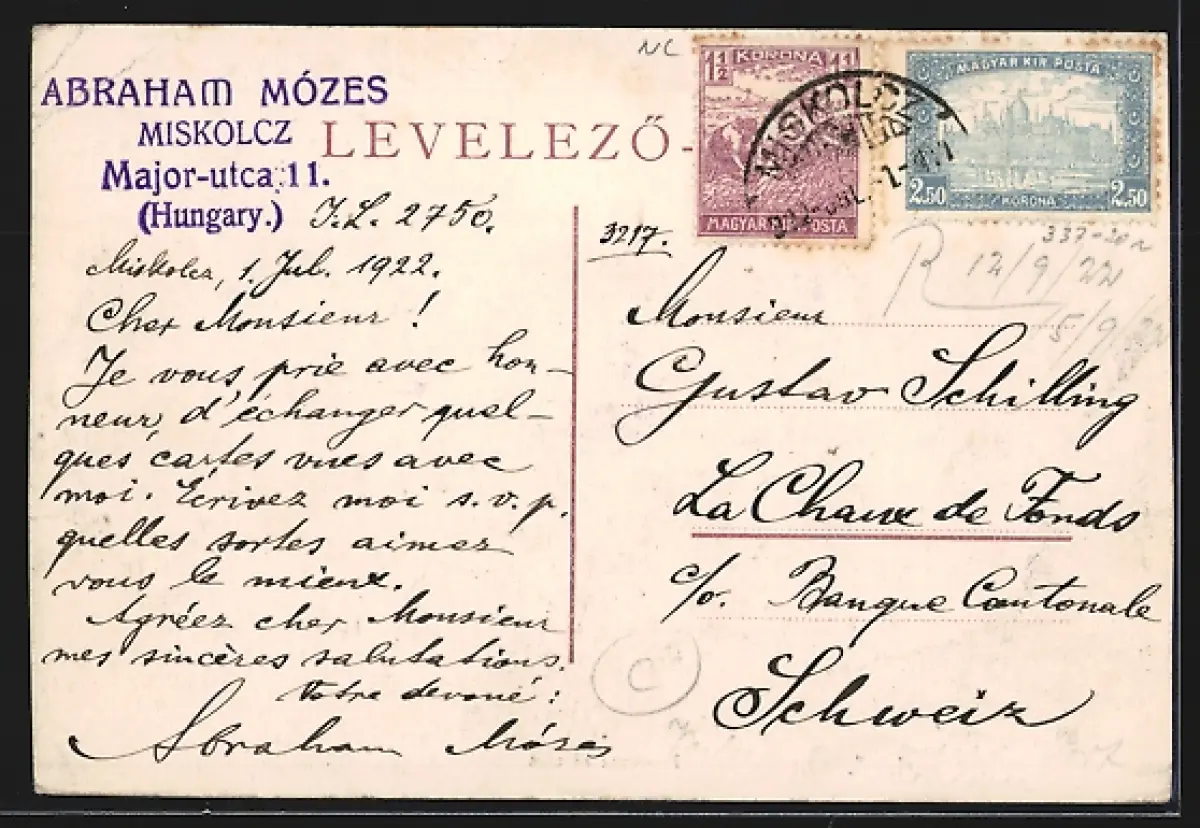 ABRAHAM MÓZES
MISKOLCZ
Major-utca 11.
(Hungary.)
LEVELEZŐ-
J.L. 2750.
Miskolcz, 1. Jul. 1922.
Cher Monsieur!
Je vous prie avec hon-
neur, d'échanger quel-
ques cartes vues avec
moi. Ecrivez moi s.v.p.
quelles sortes aimez
vous le mieux.
Agréez cher Monsieur
mes sincères salutations.
Votre devoué:
Abraham Mózes
NC
1½ KORONA 1½
MAGYAR KIR. POSTA
MISKOLCZ
MAGYAR KIR. POSTA
2.50 KORONA 2.50
3217.
337-20
R 12/9/22
15/9/22
Monsieur
Gustav Schilling
La Chaux de Fonds
c/o. Banque Cantonale
Schweiz
C